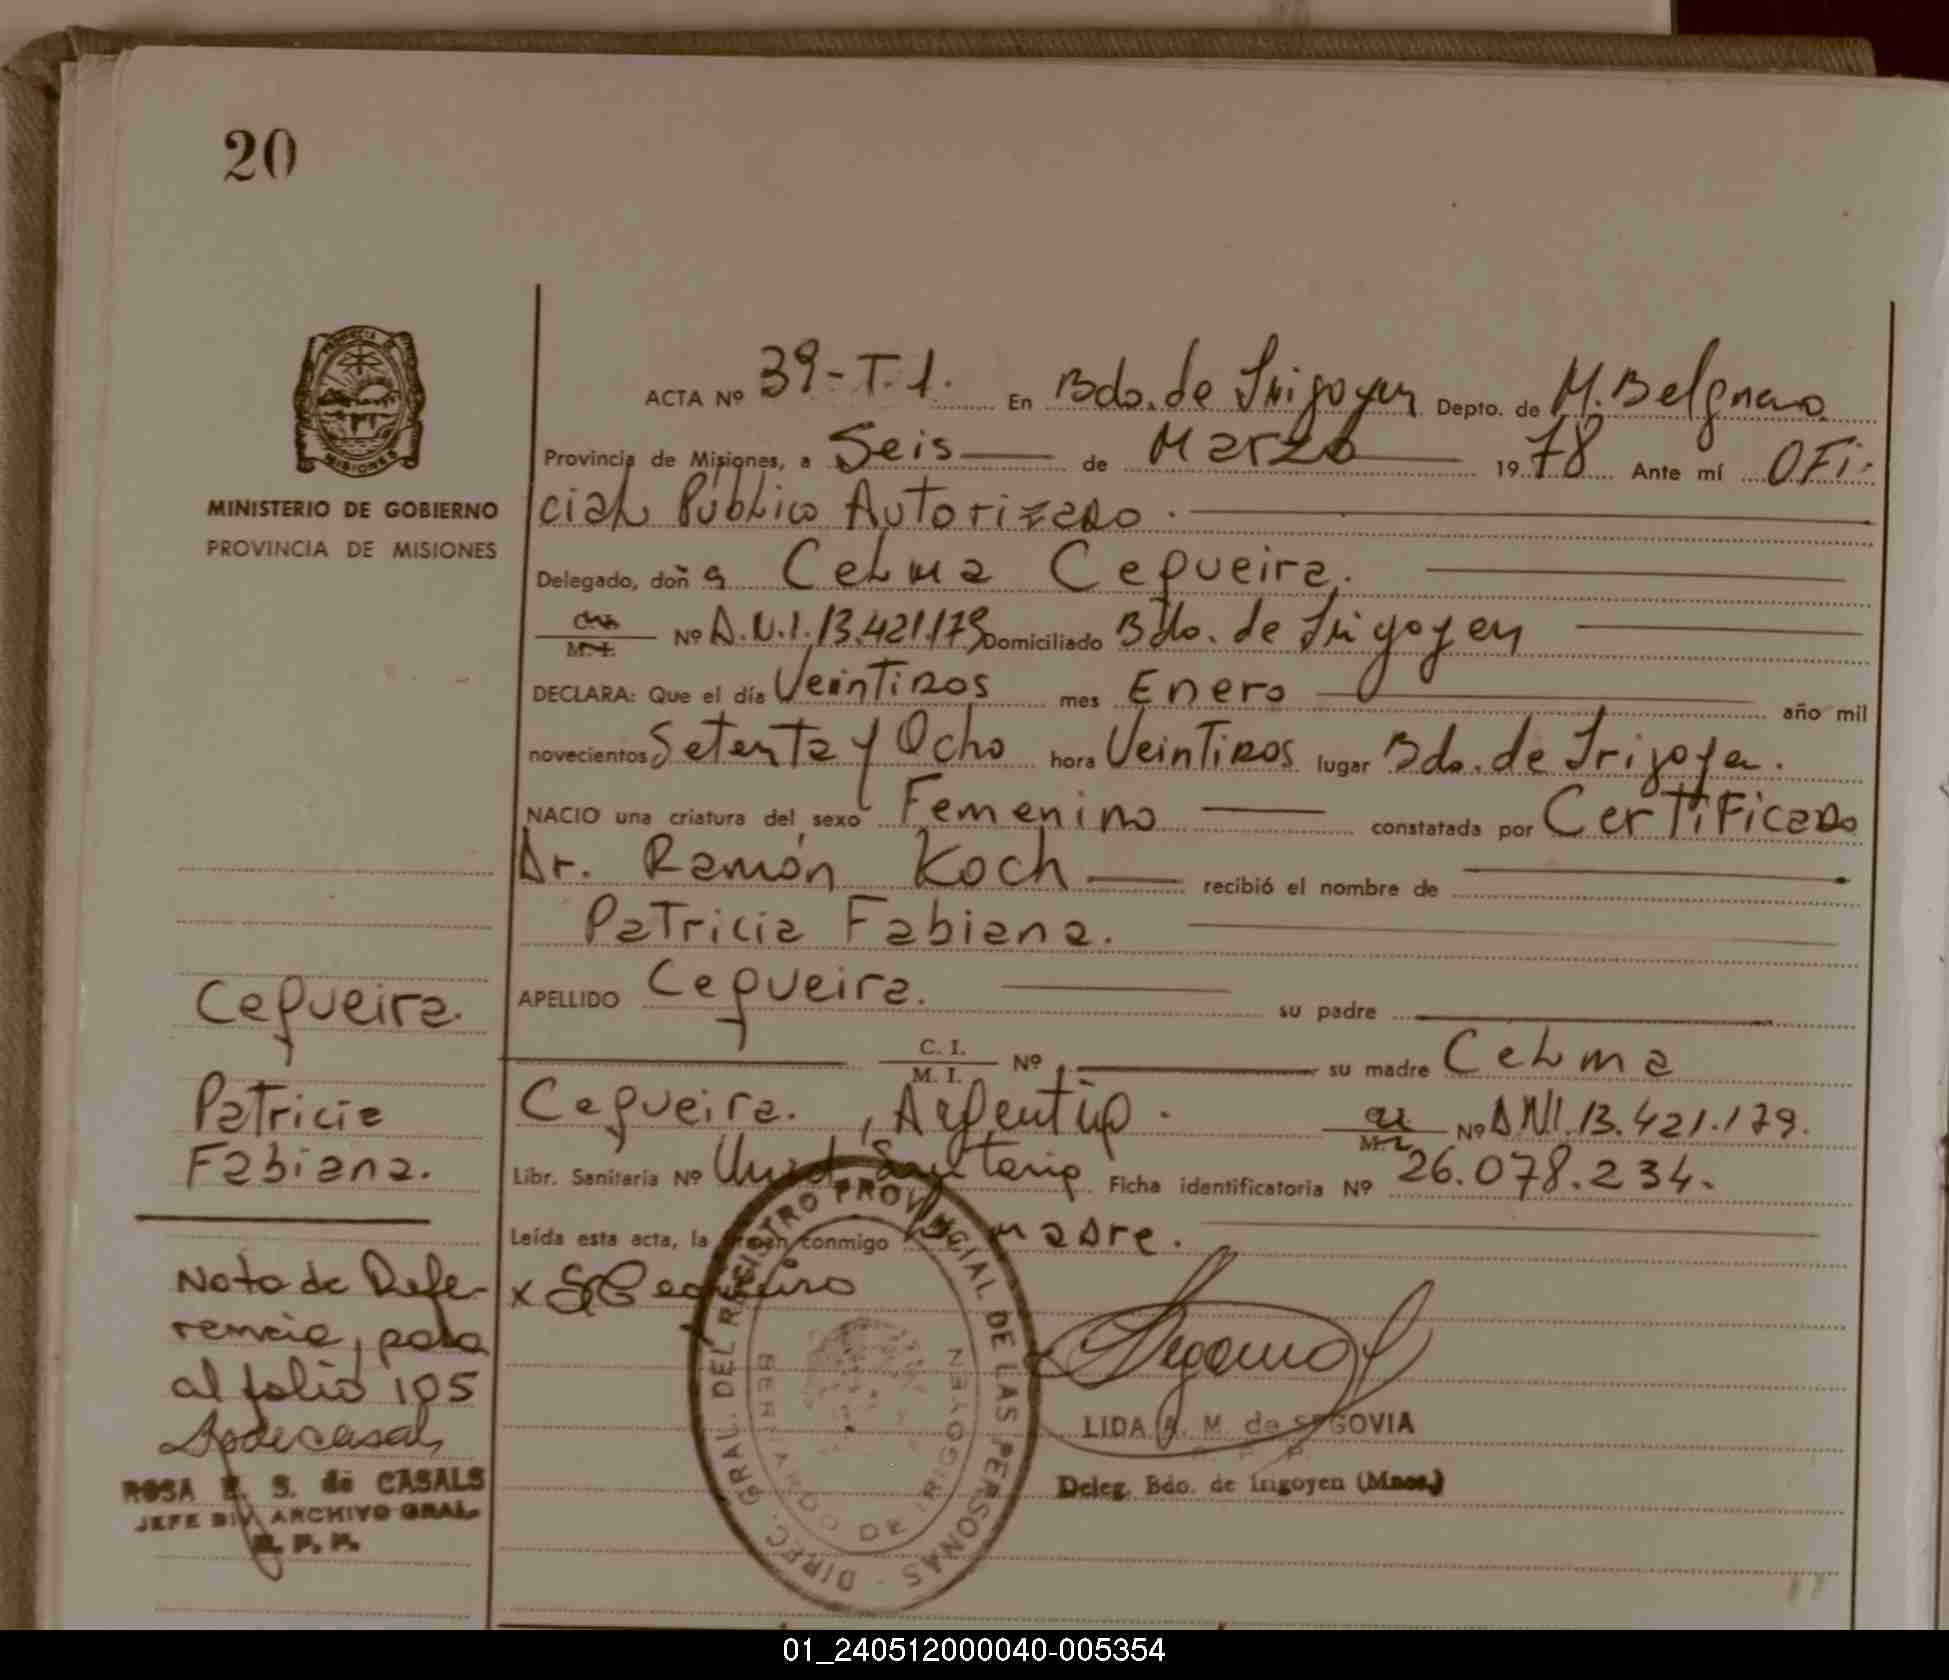 20
PROVINCIA DE
MISIONES
MINISTERIO DE GOBIERNO
PROVINCIA DE MISIONES
ACTA Nº 39-T.1. En Bdo. de Irigoyen Depto. de M. Belgrano
Provincia de Misiones, a Seis de Marzo 1978 Ante mí OFi-
ciaL Público Autorizado.
Delegado, doña CeLma Cequeira.
Nº D.N.I. 13.421.179 Domiciliado Bdo. de Irigoyen
DECLARA: Que el día Veintidos mes Enero año mil
novecientos Setenta y Ocho hora Veintidos lugar Bdo. de Irigoyen.
NACIO una criatura del sexo Femenino constatada por Certificado
Dr. Ramón Koch recibió el nombre de
Patricia Fabiana.
APELLIDO Cequeira. su padre
C. I.
M. I. Nº su madre CeLma
Cequeira. , Argentina. Nº DNI. 13.421.179.
Libr. Sanitaria Nº Unid Sanitaria Ficha identificatoria Nº 26.078.234.
Leída esta acta, la firman conmigo la madre.
x Cequeira
LIDA A. M. de SEGOVIA
Deleg. Bdo. de Irigoyen (Mnes.)
DIREC. GRAL. DEL REGISTRO PROVINCIAL DE LAS PERSONAS
BERNARDO DE IRIGOYEN
Cequeira.
Patricia
Fabiana.
Nota de Refe-
rencia, pasa
al folio 105
ROSA E. S. de CASALS
JEFE DIV. ARCHIVO GRAL.
R. P. P.
01_240512000040-005354